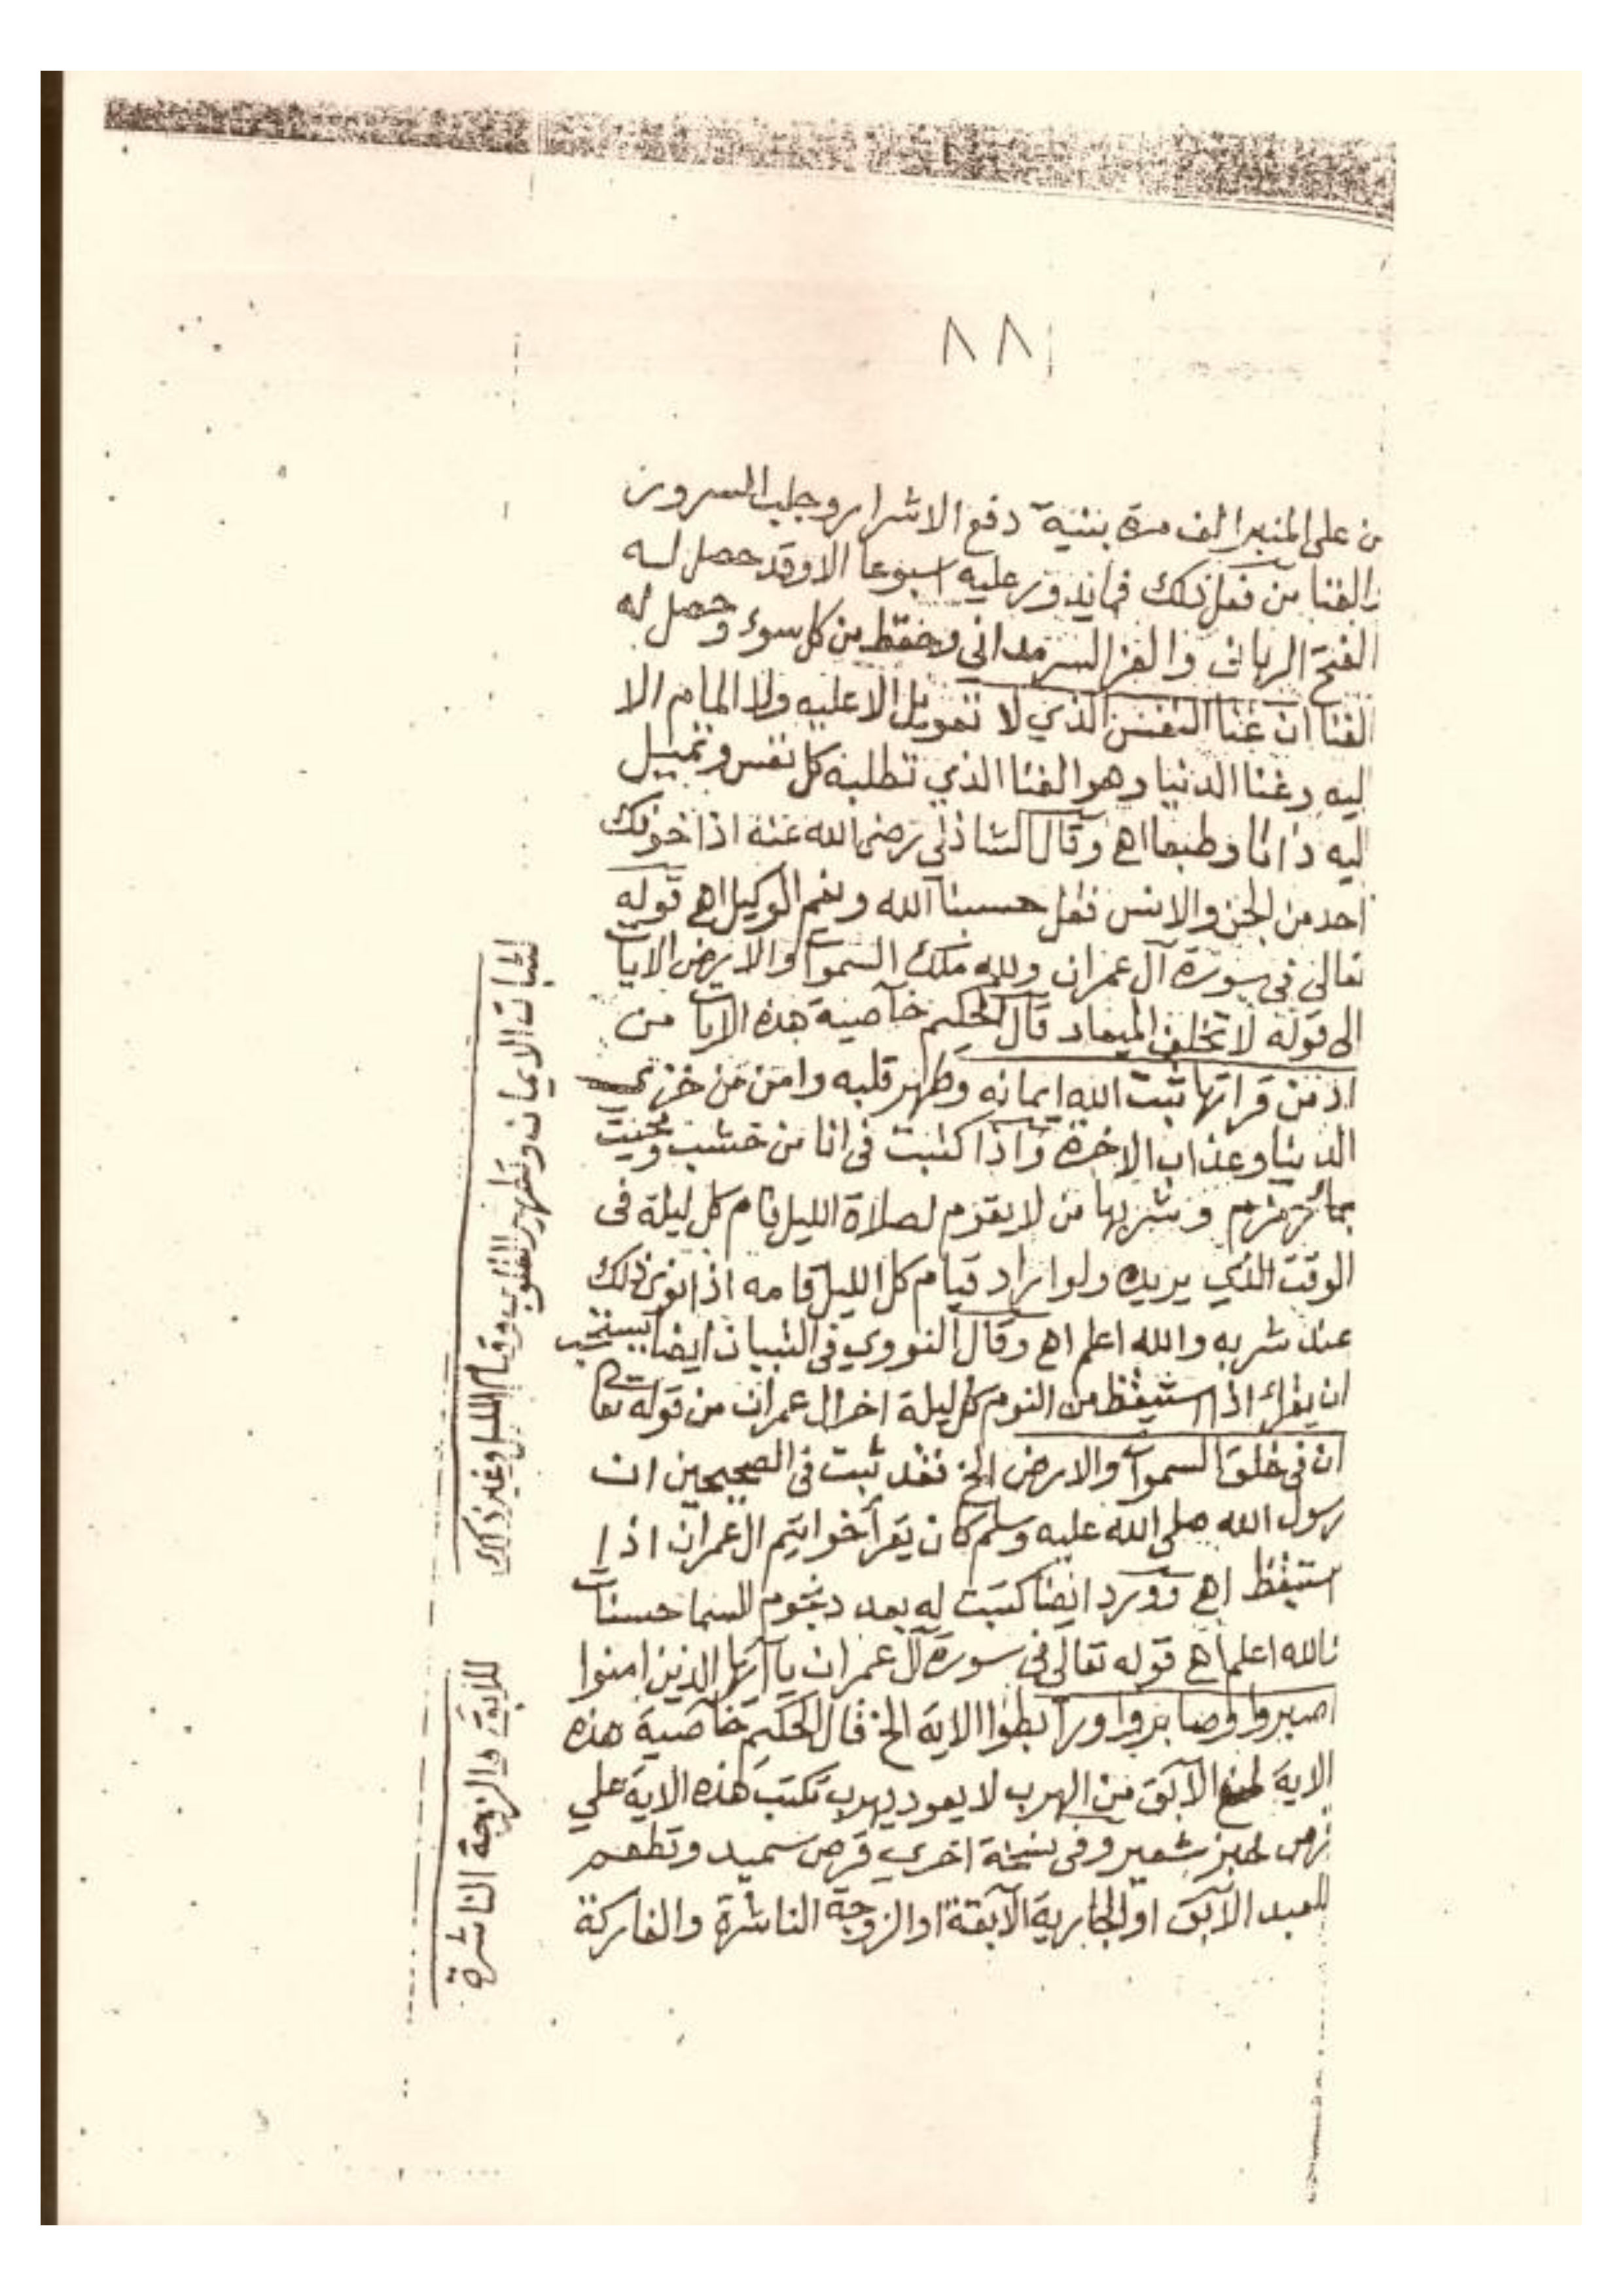 ٨٨
من على المنبر الف مرة بنية دفع الاشرار وجلب السرور
والغنا من فعل ذلك فما يدور عليه اسبوعا الا وقد حصل له
الفتح الربان والعز السرمدانى وحفظ من كل سوء وحصل له
الغنا ان غنا النفس الذي لا تعويل الا عليه ولا المام الا
ليه وغنا الدنيا وهو الغنا الذي تطلبه كل نفس وتميل
ليه ذاتا وطبعا اهـ وقال الشاذلي رضى الله عنه اذا خوفك
احد من الجن والانس فقل حسبنا الله ونعم الوكيل اهـ قوله
تعالى فى سورة آل عمران ولله ملك السموات والارض الايات
الى قوله لا تخلف الميعاد قال الحكيم خاصية هذه الايات من
اذ من قراتها ثبت الله ايمانه وطهر قلبه وامن من خزي
الدنيا وعذاب الاخرة واذا كتبت فى انا من خشب ومحيت
بمائ زمزم وشربها من لا يقوم لصلاة الليل قام كل ليلة فى
الوقت الذي يريده ولو اراد قيام كل الليل قامه اذا نوى ذلك
عند شربه والله اعلم اهـ وقال النووي فى التبيان ايضا يستحب
ان يقرأ اذا استيقظ من النوم كل ليلة اخر ال عمران من قوله تعا
ان فى خلق السموات والارض الخ فقد ثبت فى الصحيحين ان
رسول الله صلى الله عليه وسلم كان يقرأ خواتيم ال عمران اذا
استيقظ اهـ وورد ايضا كتبت له بعدد نجوم السما حسنات
والله اعلم اهـ قوله تعالى فى سورة آل عمران يا ايها الذين امنوا
اصبروا وصابروا ورابطوا الاية الخ قال الحكيم خاصية هذه
الاية لمنع الآبق من الهرب لا يعود يهرب تكتب هذه الاية علي
قرص خبز شعير وفى نسخة اخري قرص سميد وتطعم
للعبد الآبق او الجارية الآبقة او الزوجة الناشزة والفاركة
لثبات الايمان وتطهير القلوب وقيام الليل وغير ذلك
للآبق والزوجة الناشزة